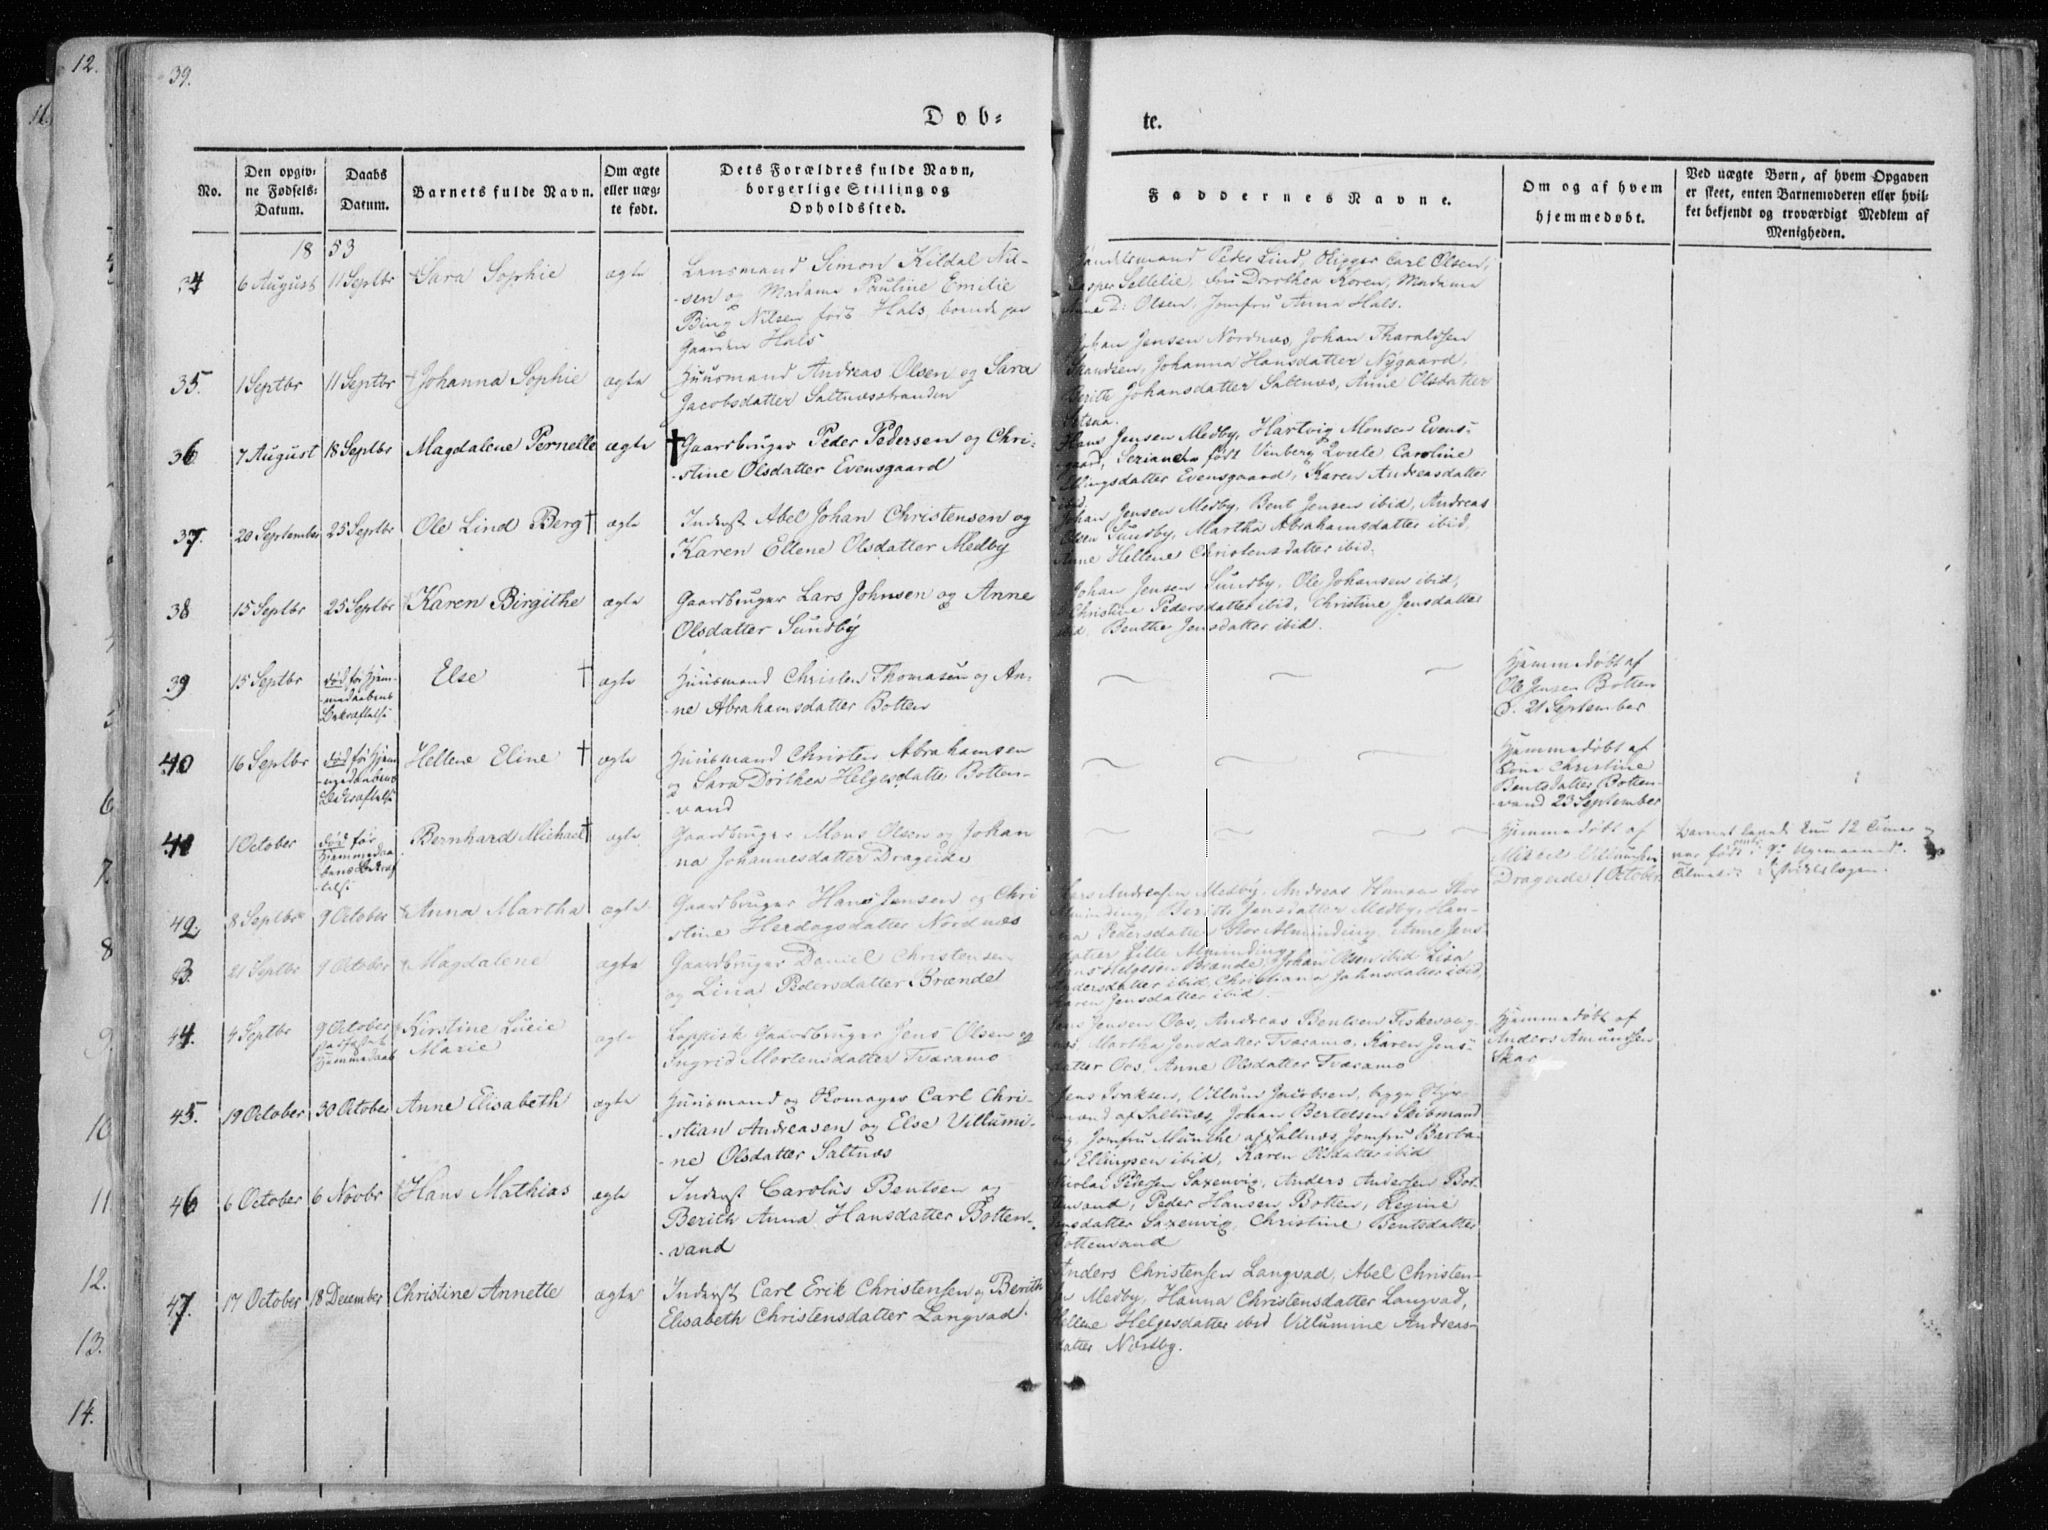 12.
11.
39.
Døb-
te.
No.
Den opgiv-
ne Fødsels-
Datum.
Daabs
Datum.
Barnets fulde Navn.
Om ægte
eller uæg-
te født.
Dets Forældres fulde Navn,
borgerlige Stilling og
Opholdssted.
Faddernes Navne.
Om og af hvem
hjemmedøbt.
Ved uægte Børn, af hvem Opgaven
er skeet, enten Barnemoderen eller hvil-
ket bekjendt og troværdigt Medlem af
Menigheden.
18 53
34 6 August 11 Septbr Sara Sophie ægte
Lensmand Simon Kildal Nil-
-sen og Madame Pauline Emilie
Bing Nilsen født Hals, boende paa
Gaarden Hals
Peder Lind, Carl Olsen,
Fru Dorothea Koren, Madame
D: Olsen, Jomfru Anna Hals.
35. 1 Septbr 11 Septbr Johanna Sophie ægte
Huusmand Andreas Olsen og Sara
Jacobsdatter Saltnæsstranden
Johan Jensen Nordnæs, Johan Tharaldsen
Johanna Hansdatter Nygaard,
Berith Johansdatter Saltnæs, Anne Olsdatter
36 7 August 18 Septbr Magdalene Pernelle ægte
† Gaardbruger Peder Pedersen og Chri-
-stine Olsdatter Evensgaard
Hans Jensen Medby, Hartvig Monsen Evens-
-gaard, født Vinberg Caroline
Ellingsdatter Evensgaard, Karen Andreasdatter
ibid.
37. 20 September 25 Septbr Ole Lind Berg † ægte
Inderst Abel Johan Christensen og
Karen Ellene Olsdatter Medby
Johan Jensen Medby, Bent Jensen ibid, Andreas
Olsen Sundby, Martha Abrahamsdatter ibid,
Anne Hellene Christensdatter ibid.
38 15 Septbr 25 Septbr Karen Birgithe ægte
Gaardbruger Lars Johnsen og Anne
Olsdatter Sundby
Johan Jensen Sundby, Ole Johansen ibid,
Christine Pedersdatter ibid, Christine Jensdatter
ibid, Benthe Jensdatter ibid.
39 15 Septbr død før Hjem-
-medaabens
Bekræftelse
Else † ægte
Huusmand Christen Thomasen og An-
-ne Abrahamsdatter Botten
Hjemmedøbt af
Ole Jensen Botten
d. 21 September
40 16 Septbr død før Hjem-
-medaabens
Bekræftelse
Hellene Eline † ægte
Huusmand Christen Abrahamsen
og Sara Dorthea Helgesdatter Botten-
-vand
Hjemmedøbt af
Kone Christine
Bentsdatter Botten-
-vand 23 September
41 1 October død før
Hjemmedaa-
bens Bekræf-
telse
Bernhard Michael † ægte
Gaardbruger Mons Olsen og Johan
-na Johannesdatter Drageide
Hjemmedøbt af
Mikkel Villumsen
Drageide 1 October.
Barnet levede kun 12 Timer og
var født i
42. 8 Septbr 9 October Anna Martha ægte
Gaardbruger Hans Jensen og Chri
stine Herdagsdatter Nordnæs
Lars Andreasen Medby, Andreas Hansen Stor
Alminding, Berith Jensdatter Medby, Han-
na Pedersdatter Stor Alminding, Anne Jens
datter Lille Alminding
3. 21 Septbr 9 October Magdalene ægte
Gaardbruger Daniel Christensen
og Lina Pedersdatter Brænde
Hans Helgesen Brænde, Johan Olsen ibid, Lisa
Andersdatter ibid, Christiana Johnsdatter ibid,
Karen Jensdatter ibid.
44. 4 Septbr 9 October
stadfæstet
Hjemmedaab
Kirstine Lucie
Marie
ægte
Lappisk Gaardbruger Jens Olsen og
Ingrid Mortensdatter Tværamo
Jens Jensen Oos, Andreas Bentsen Fiskevaag-
næs, Martha Jensdatter Tværamo, Karen Jens-
datter Oos, Anne Olsdatter Tværamo
Hjemmedøbt af
Anders Amundsen
Skar
45. 19 October 30 October Anne Elisabeth ægte
Huusmand og Skomager Carl Chri-
-stian Andreasen og Else Villumi-
-ne Olsdatter Saltnæs
Jens Isaksen, Villum Jacobsen, begge
af Saltnæs, Johan Bertelsen Skibmand
Jomfru Munthe af Saltnæs, Jomfru Barba-
ra Ellingsen ibid, Karen Olsdatter ibid
46 6 October 6 Novbr Hans Mathias ægte
Inderst Carolus Bentsen og
Berith Anna Hansdatter Botten-
-vand
Nicolai Pedersen Saxenvig, Anders Andersen Bot-
tenvand, Peder Hansen Botten, Regine
Jensdatter Saxenvig, Christine Bentsdatter
Bottenvand
47. 17 October 18 December Christine Annette ægte
Inderst Carl Erik Christensen og Berith
Elisabeth Christensdatter Langvad.
Anders Christensen Langvad, Abel Christen-
sen Medby, Hanna Christensdatter Langvad,
Hellene Helgesdatter ibid Villumine Andreas-
datter Næstby.
6
7.
8
9.
10
11.
12.
13.
14.